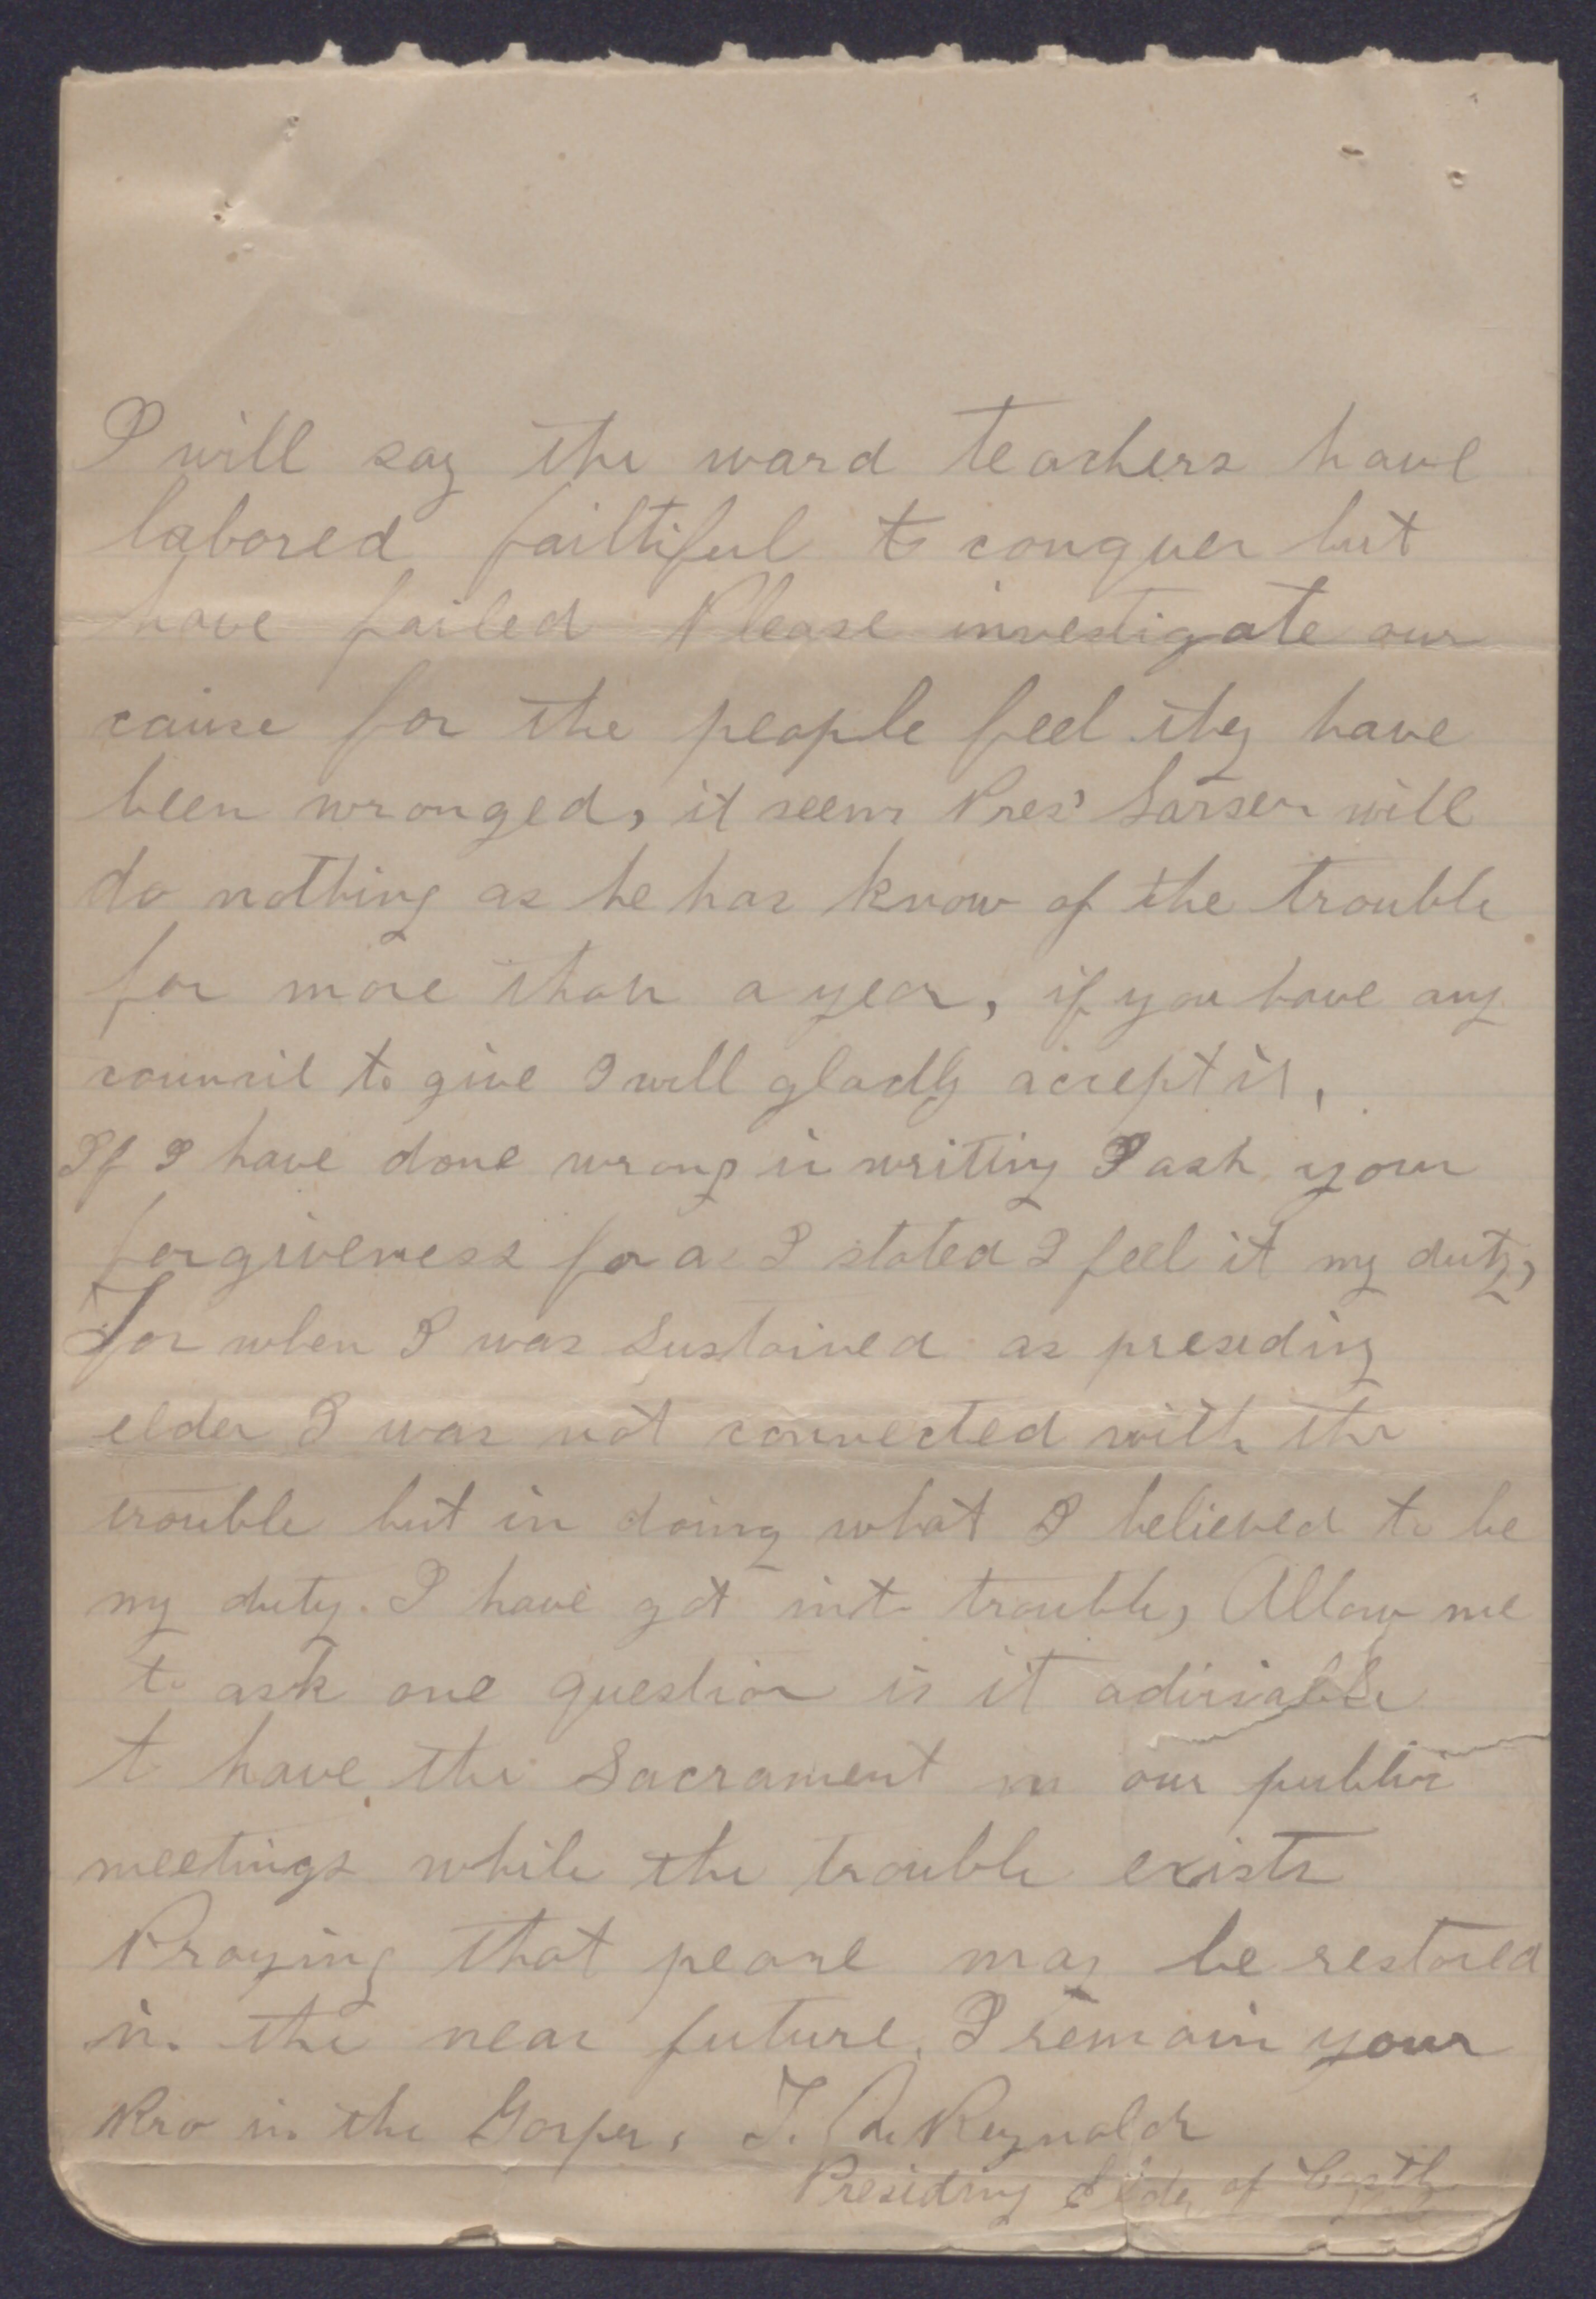 I will say the ward teachers have
labored failtiful to conquer but
have failed Please investigate our
cause for the people feel they have
been wronged, it seems Pres' Larsen will
do nothing as he has know of the trouble
for more than a year, if you have any
council to give I will gladly accept it,
If I have done wrong in writing I ask your
forgiveness for as I stated I feel it my duty,
For when I was sustained as preseding
elder I was not connected with the
trouble but in doing what I believed to be
my duty. I have got into trouble, Allow me
to ask one question is it advisable
to have the Sacrament in our public
meetings while the trouble exists
Praying that peace may be restored
in the near future, I remain your
Bro in the Gospel, J. Reynolds
Presiding Elder of